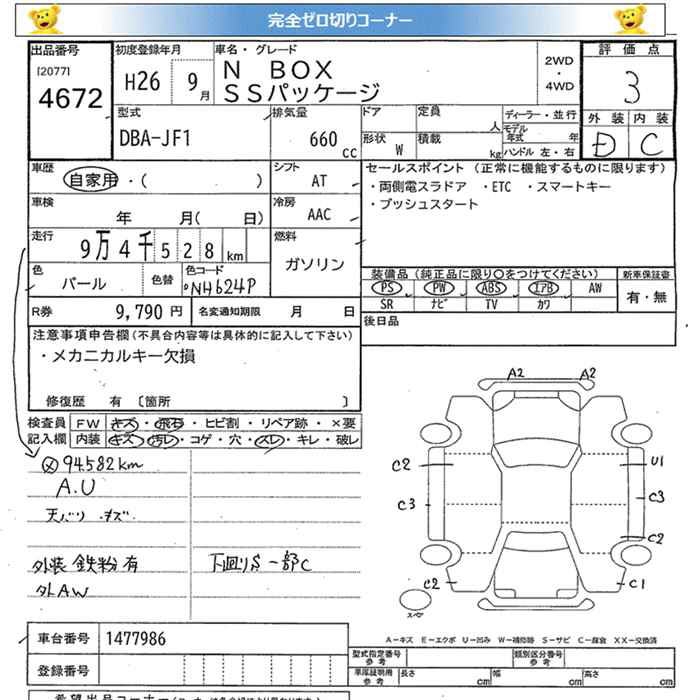 完全ゼロ切りコーナー
出品番号
[2077]
4672
初度登録年月
H26 9月
車名・グレード
N BOX
SSパッケージ
2WD
・
4WD
評価点
3
外装 内装
D C
型式
DBA-JF1
排気量
660 cc
ドア
定員
人
形状 W
積載
kg
ディーラー・並行
モデル年式 年
ハンドル 左・右
車歴
自家用・( )
シフト
AT
車検
年 月( 日)
冷房
AAC
走行
9万4千528km
燃料
ガソリン
色
パール
色替
色コード
NH624P
R券 9,790 円
名変通知期限 月 日
セールスポイント (正常に機能するものに限ります)
・両側電スラドア ・ETC ・スマートキー
・プッシュスタート
装備品 (純正品に限り○をつけてください)
新車保証書
PS PW ABS エアB AW
SR ナビ TV カワ
有・無
後日品
注意事項申告欄(不具合内容等は具体的に記入して下さい)
・メカニカルキー欠損
修復歴 有 〔箇所 〕
検査員
記入欄
FW キズ・飛石・ヒビ割・リペア跡・×要
内装 キズ・汚レ・コゲ・穴・スレ・キレ・破レ
94582km
A.U
天バリ キズ
外装 鉄粉 有
外AW
下廻りS 一部C
A2 A2
C2 U1
C3 C3
C2
C2 C1
スペア
A−キズ E−エクボ U−凹み W−補修跡 S−サビ C−腐食 XX−交換済
車台番号 1477986
登録番号
型式指定番号
参考
類別区分番号
参考
車庫証明用
参考
長さ cm
幅 cm
高さ cm